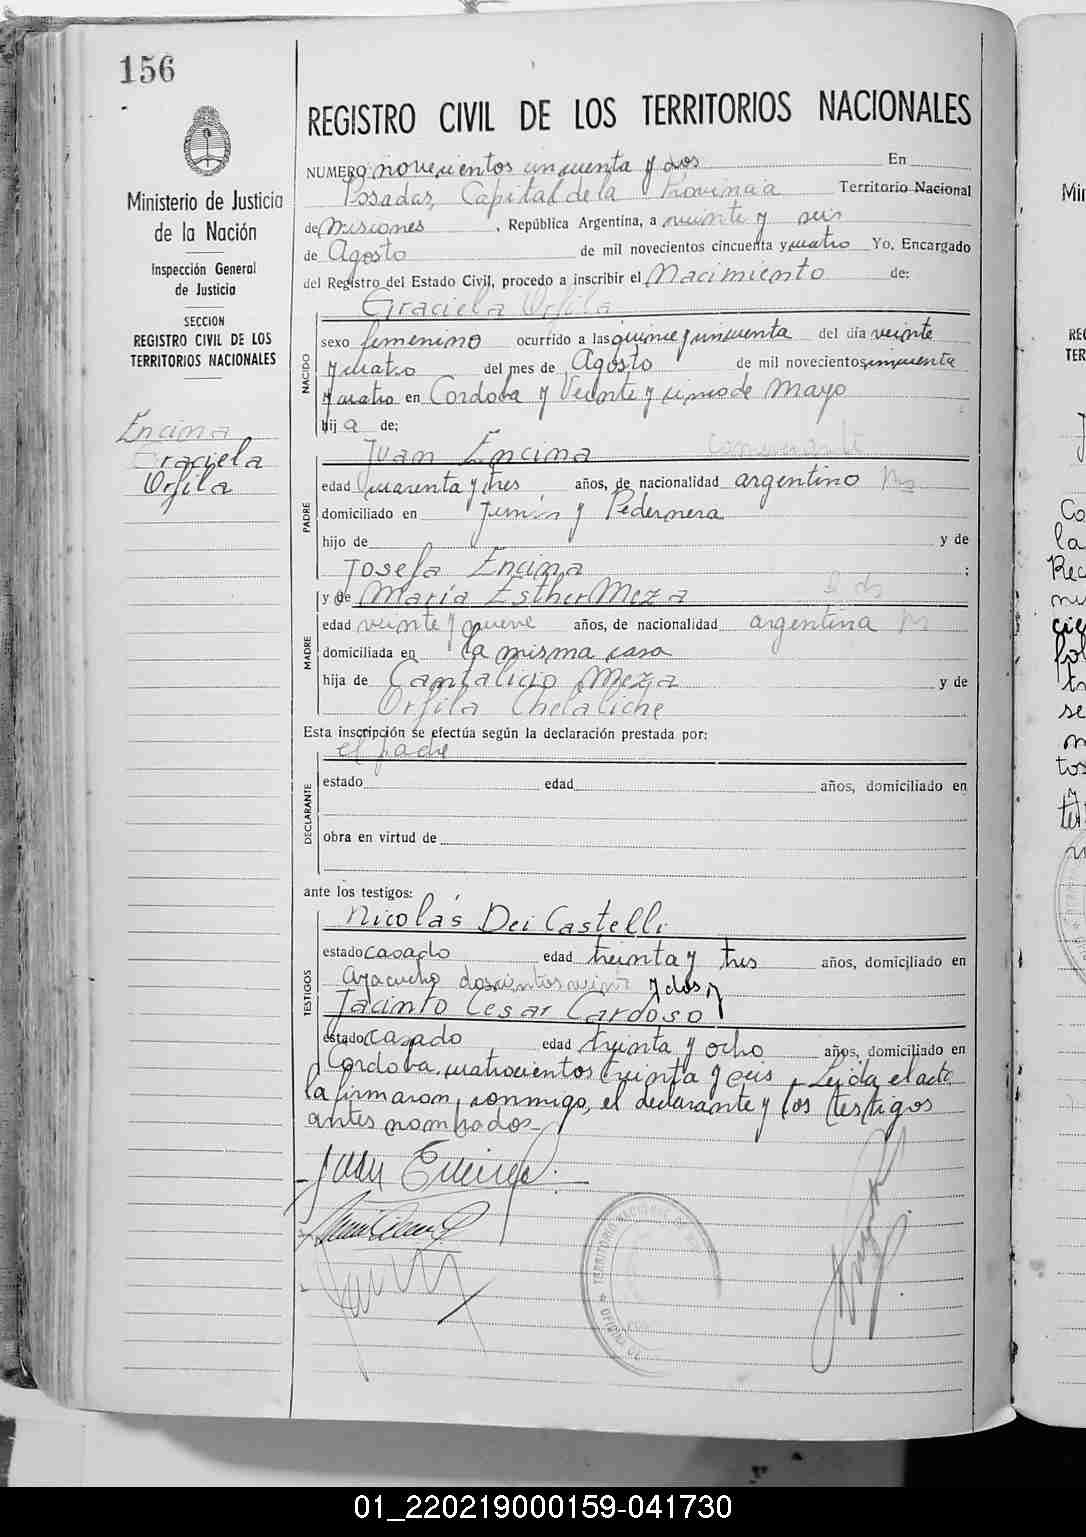 156
Ministerio de Justicia
de la Nación
Inspección General
de Justicia
SECCION
REGISTRO CIVIL DE LOS
TERRITORIOS NACIONALES
Encina
Graciela
Orfila
REGISTRO CIVIL DE LOS TERRITORIOS NACIONALES
NUMERO novecientos cincuenta y dos En
Posadas, Capital de la Provincia Territorio Nacional
de Misiones, República Argentina, a veinte y seis
de Agosto de mil novecientos cincuenta y cuatro Yo, Encargado
del Registro del Estado Civil, procedo a inscribir el Nacimiento de:
Graciela Orfila
NACIDO
sexo femenino ocurrido a las quince y cincuenta del día veinte
y cuatro del mes de Agosto de mil novecientos cincuenta
y cuatro en Cordoba y Veinte y cinco de Mayo
hij a de:
Juan Encina comerciante
PADRE
edad cuarenta y tres años, de nacionalidad argentino
domiciliado en Junín y Pedernera
hijo de y de
Josefa Encina ;
y de María Esther Meza
MADRE
edad veinte y nueve años, de nacionalidad argentina
domiciliada en la misma casa
hija de Cantalicio Meza y de
Orfila Chelaliche
Esta inscripción se efectúa según la declaración prestada por:
el padre
DECLARANTE
estado edad años, domiciliado en
obra en virtud de
ante los testigos:
Nicolás Dei Castelli
TESTIGOS
estado casado edad treinta y tres años, domiciliado en
Ayacucho doscientos y dos y
Jacinto Cesar Cardoso
estado casado edad treinta y ocho años, domiciliado en
Cordoba cuatrocientos treinta y seis. Leida el acta
la firmaron, conmigo, el declarante y los testigos
antes nombrados.
Juan Encina
TERRITORIO NACIONAL
01_220219000159-041730